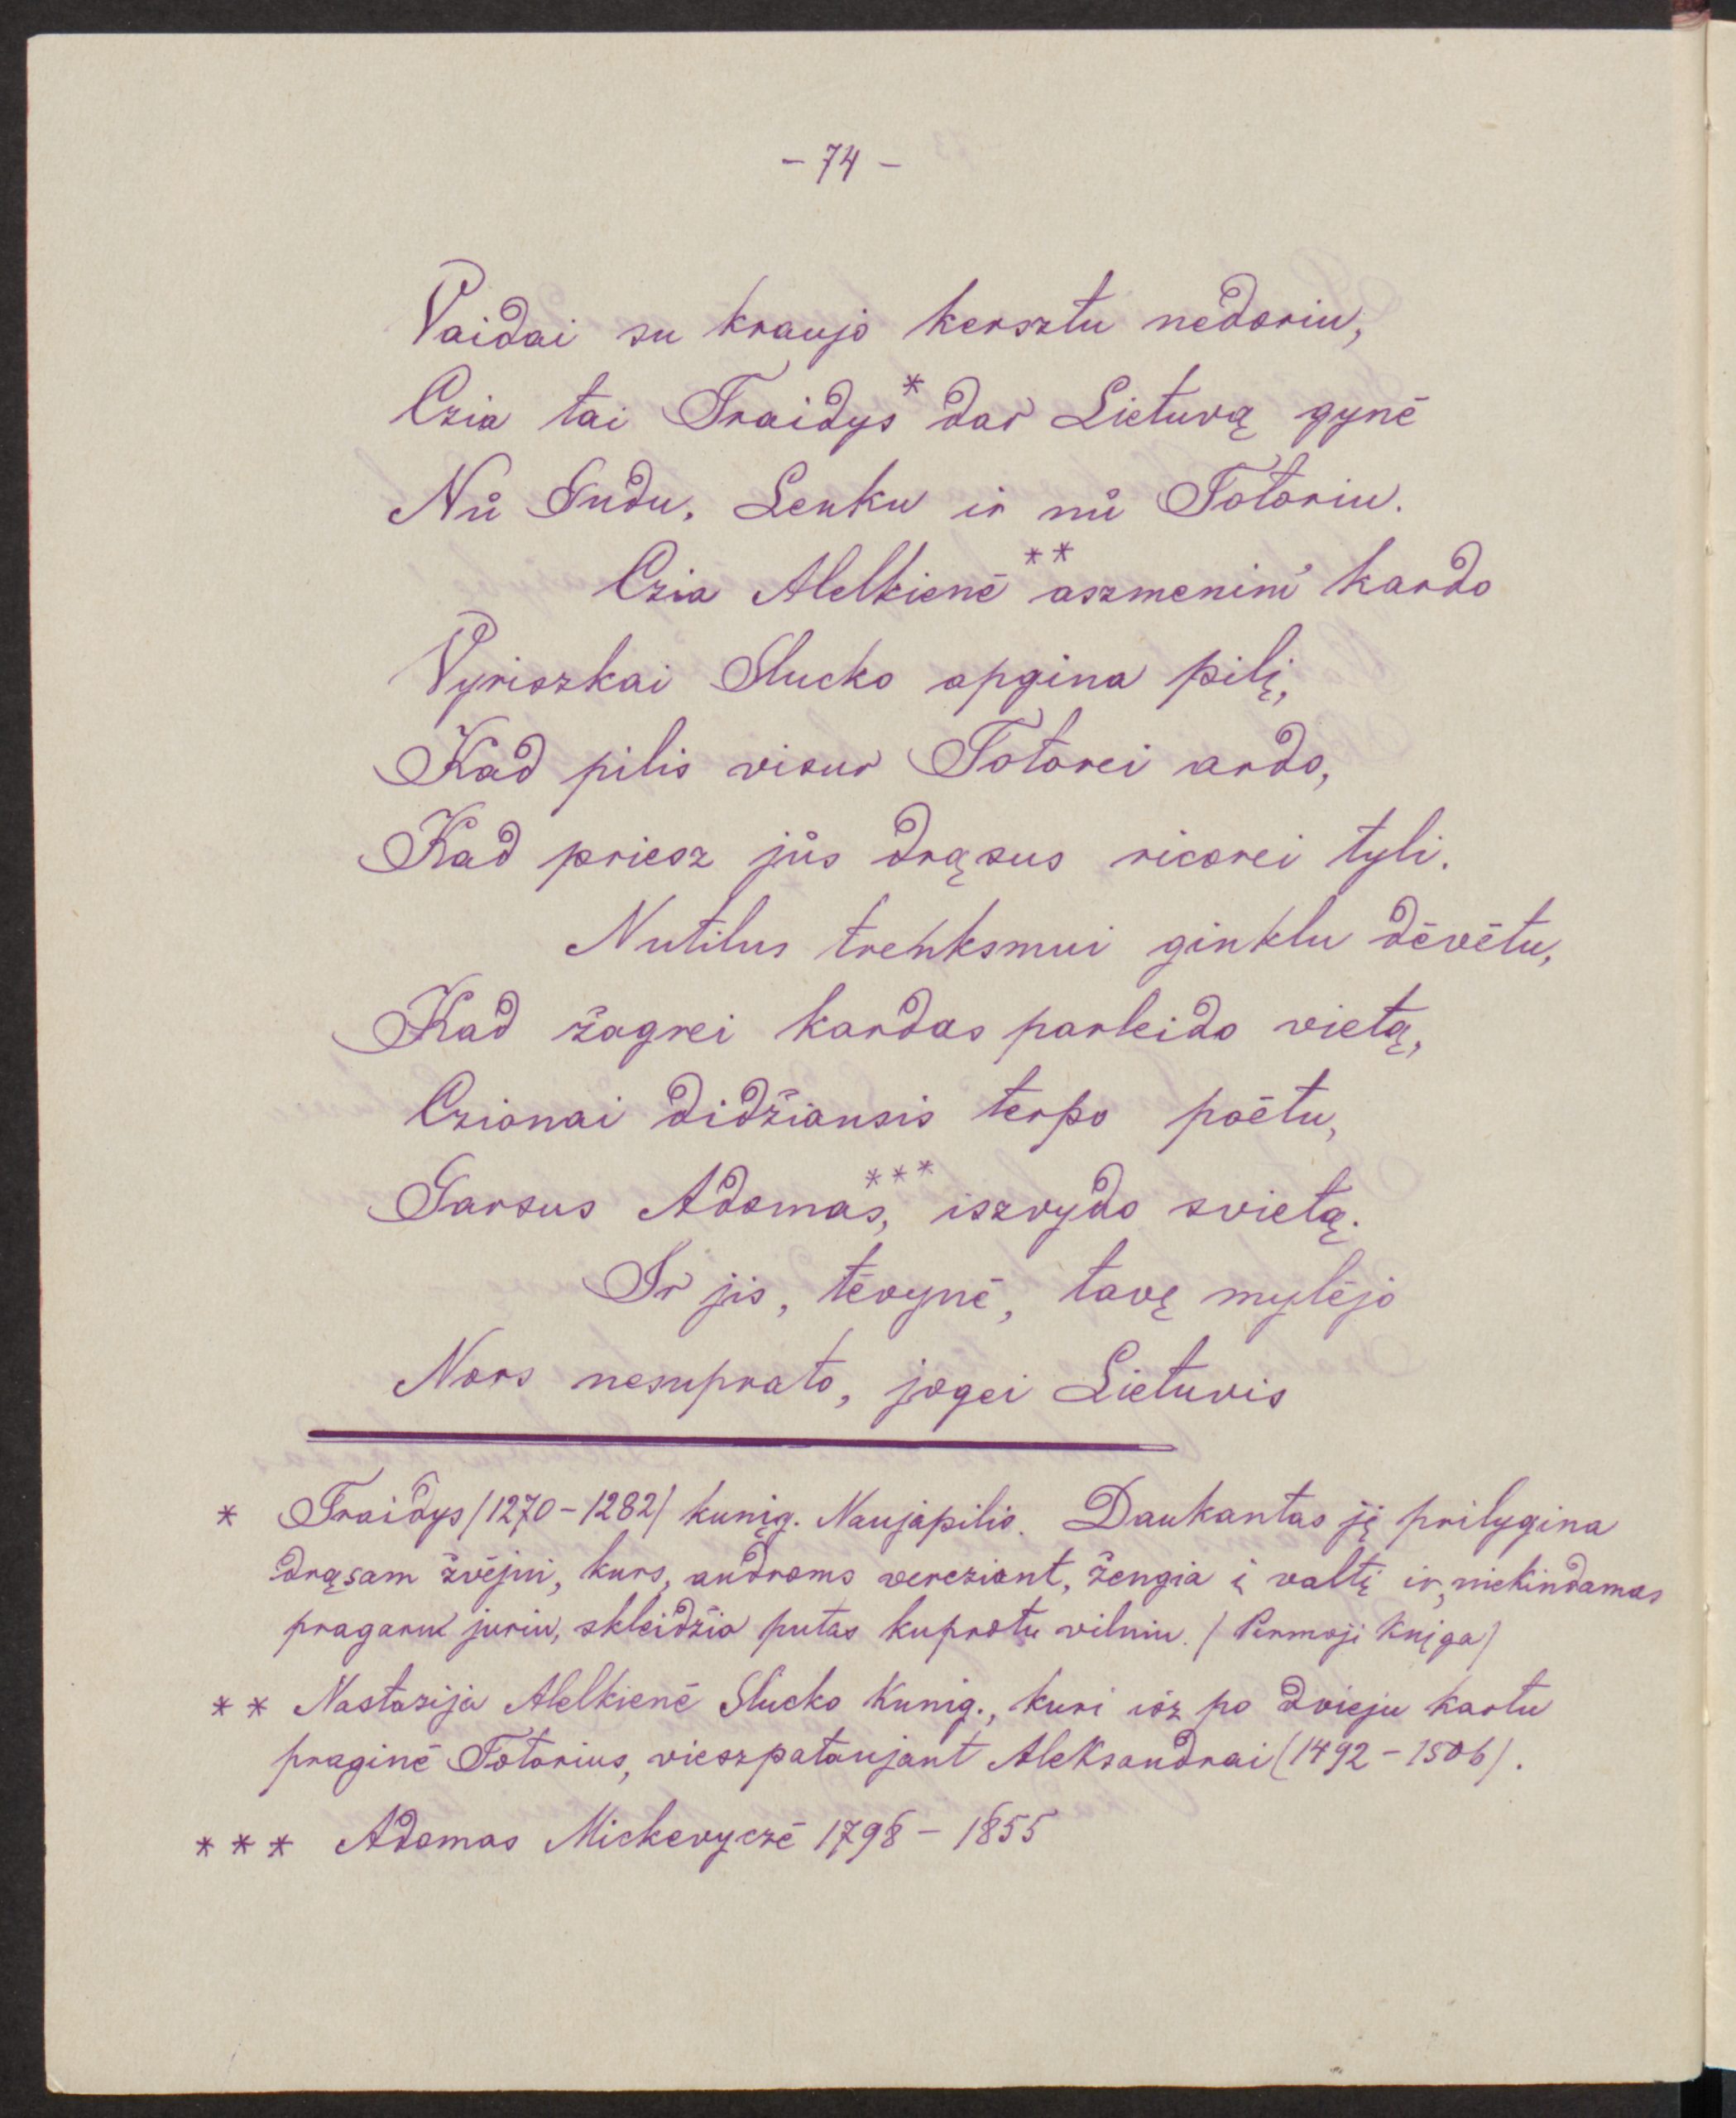 - 74 -
Vaidai su kraujo kersztu nedoriu,
Czia tai Traidys* dar Lietuvą gynė
Nů Gudu, Lenku ir nů Totoriu.
Czia Alelkienė** aszmenim' kardo
Vyriszkai Slucko apgina pilį,
Kad pilis visur Totorei ardo,
Kad priesz jůs drąsus ricorei tyli.
Nutilus trenksmui ginklu dėvėtu,
Kad žagrei kardas parleido vietą,
Czionai didžiausis terpo poėtu,
Garsus Adomas***, iszvydo svietą.
Ir jis, tėvynė, tavę mylėjo
Nors nesuprato, jogei Lietuvis
* Traidys (1270-1282) kunįg. Naujapilio. Daukantas jį prilygina
drąsam žvėjui, kurs, audroms vereziant, žengia į valtį ir, niekindamas
pragarus juriu, skleidžia putas kuprotu vilniu. (Pirmoji Knįga)
** Nastazija Alelkienė Slucko Kunig., kuri isz po dvieju kartu
praginė Totorius, vieszpataujant Aleksandrai (1492-1506).
*** Adomas Mickevyczė 1798-1855